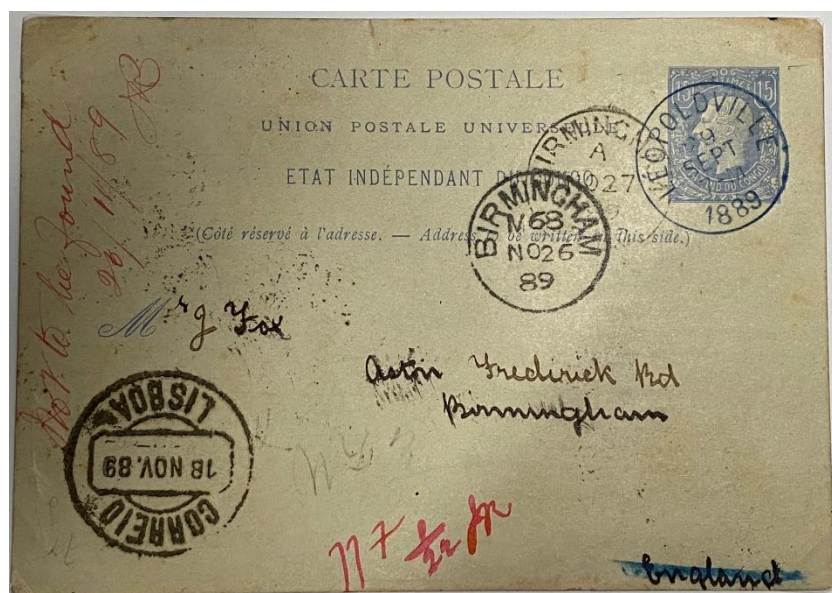 CARTE POSTALE
UNION POSTALE UNIVERSELLE
ETAT INDÉPENDANT DU CONGO
(Côté réservé à l'adresse. — Address to be written on this side.)
15
15
LÉOPOLDVILLE
9
SEPT
1889
BIRMING
A
NO27
BIRMINGHAM
68
NO26
89
Not to be found
26/11/89
Mr J Fox
Aston Frederick Rd
Birmingham
England
CORREIO
18 NOV. 89
LISBOA